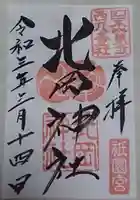 奉拝
北岡神社
令和三年三月十四日
祇園宮